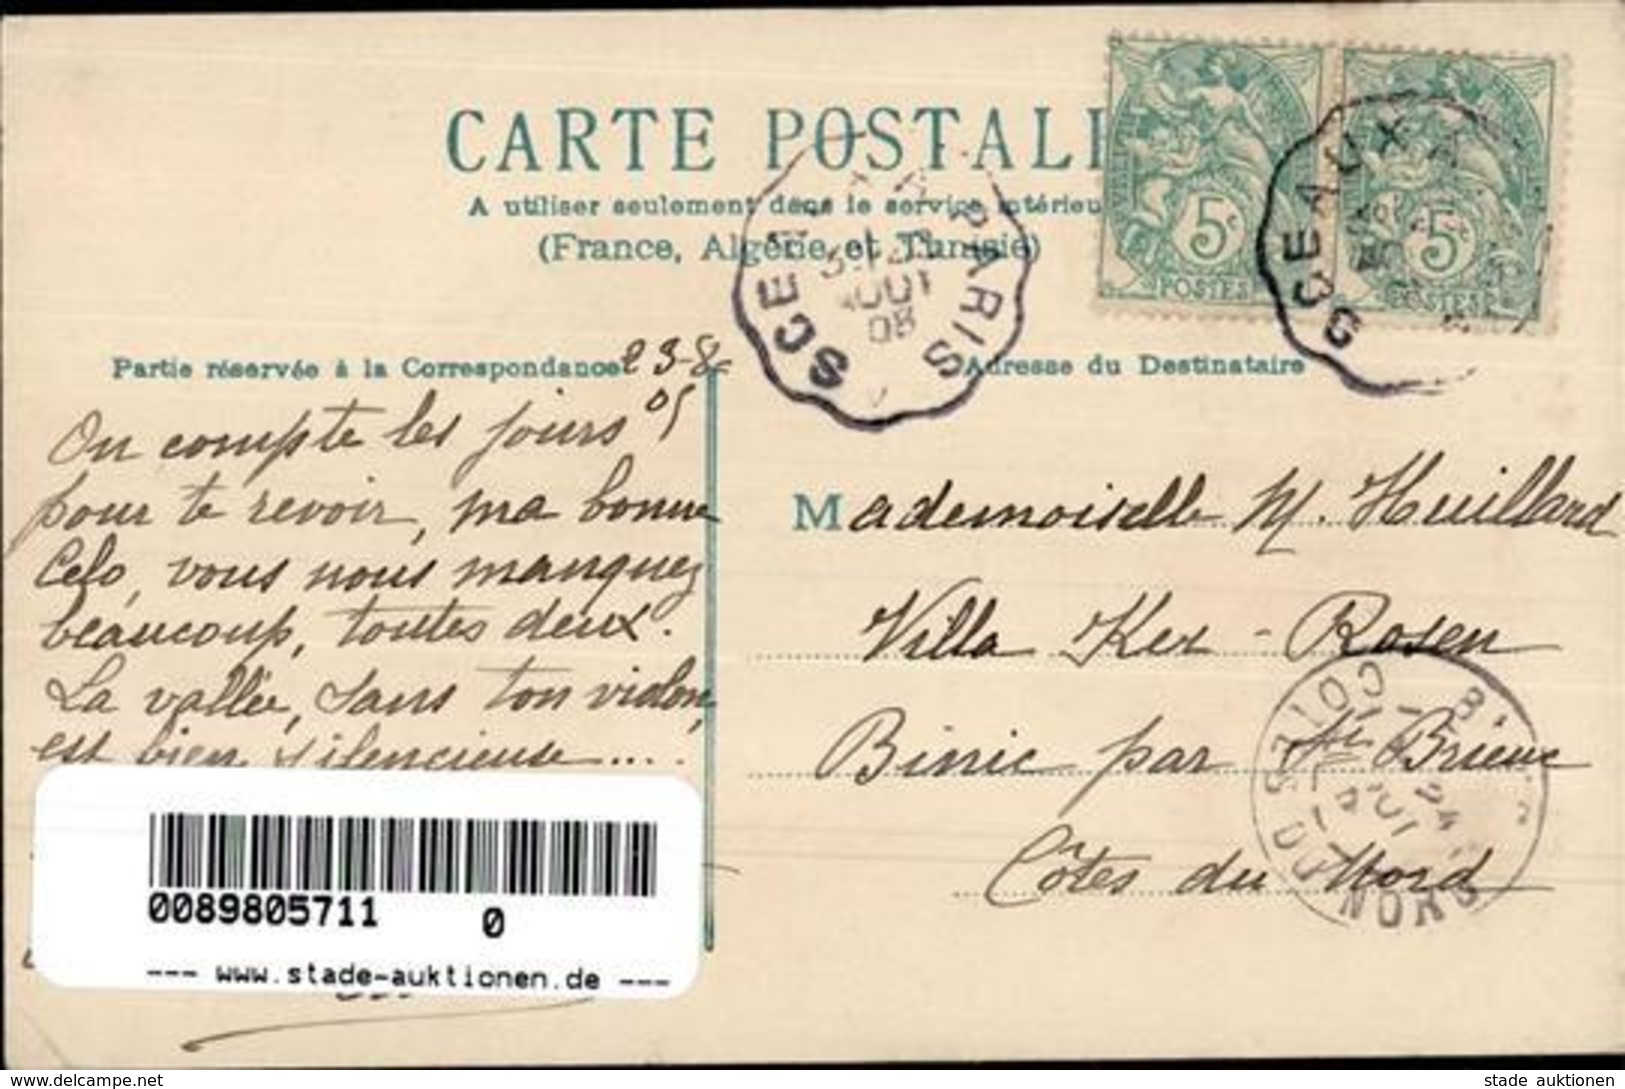 CARTE POSTALE
A utiliser seulement dans le service intérieu
(France, Algérie et Tunisie)
5c
POSTES
5c
POSTES
SCEAUX A PARIS
AOUT
08
SCEAUX A
Partie réservée à la Correspondance
23-8-
Adresse du Destinataire
On compte les jours
pour te revoir, ma bonne
Celo, vous nous manquez
beaucoup, toutes deux.
La vallée, sans ton violon,
est bien silencieuse...
Mademoiselle M. Huillard
Villa Ker-Rosen
Binic par St Brieuc
Côtes du Nord
COTES DU NORD
24
0089805711 0
--- www.stade-auktionen.de ---
www.delcampe.net
stade auktionen